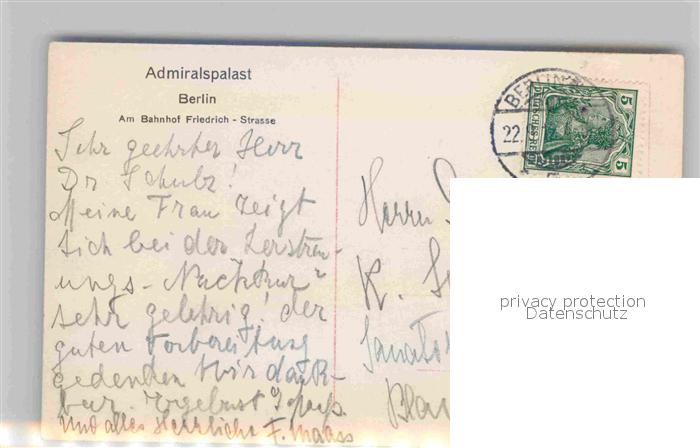 Admiralspalast
Berlin
Am Bahnhof Friedrich - Strasse
Sehr geehrter Herr
Dr Schulz!
Meine Frau zeigt
sich bei der Zerstreu-
ungs-Nachkur"
sehr gelehrig! der
guten Vorbereitung
gedenken wir dank-
bar. Ergebenst
und alles Herrliche F. Maass
BERLIN
22.
5
DEUTSCHES REICH
5
Herrn
K.
Sanato
Blan
privacy protection
Datenschutz